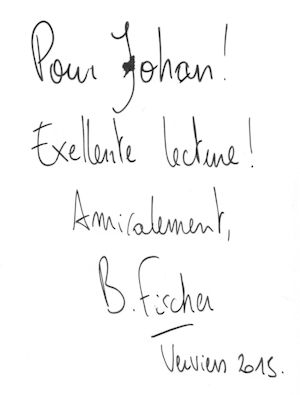 Pour Johan!
Exellente lecture!
Amicalement,
B. Fischer
Verviers 2015.